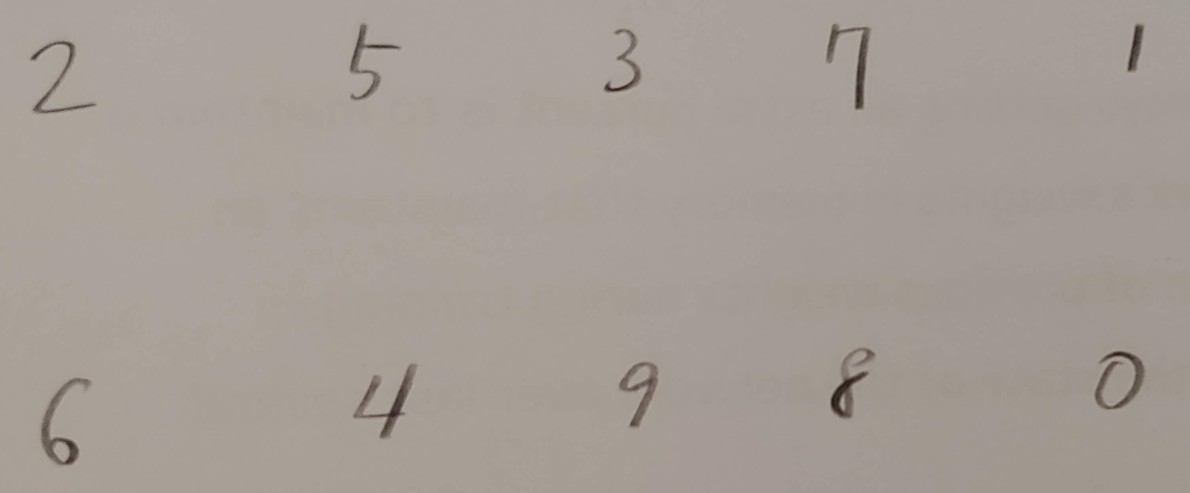 2 5 3 7 1
6 4 9 8 0